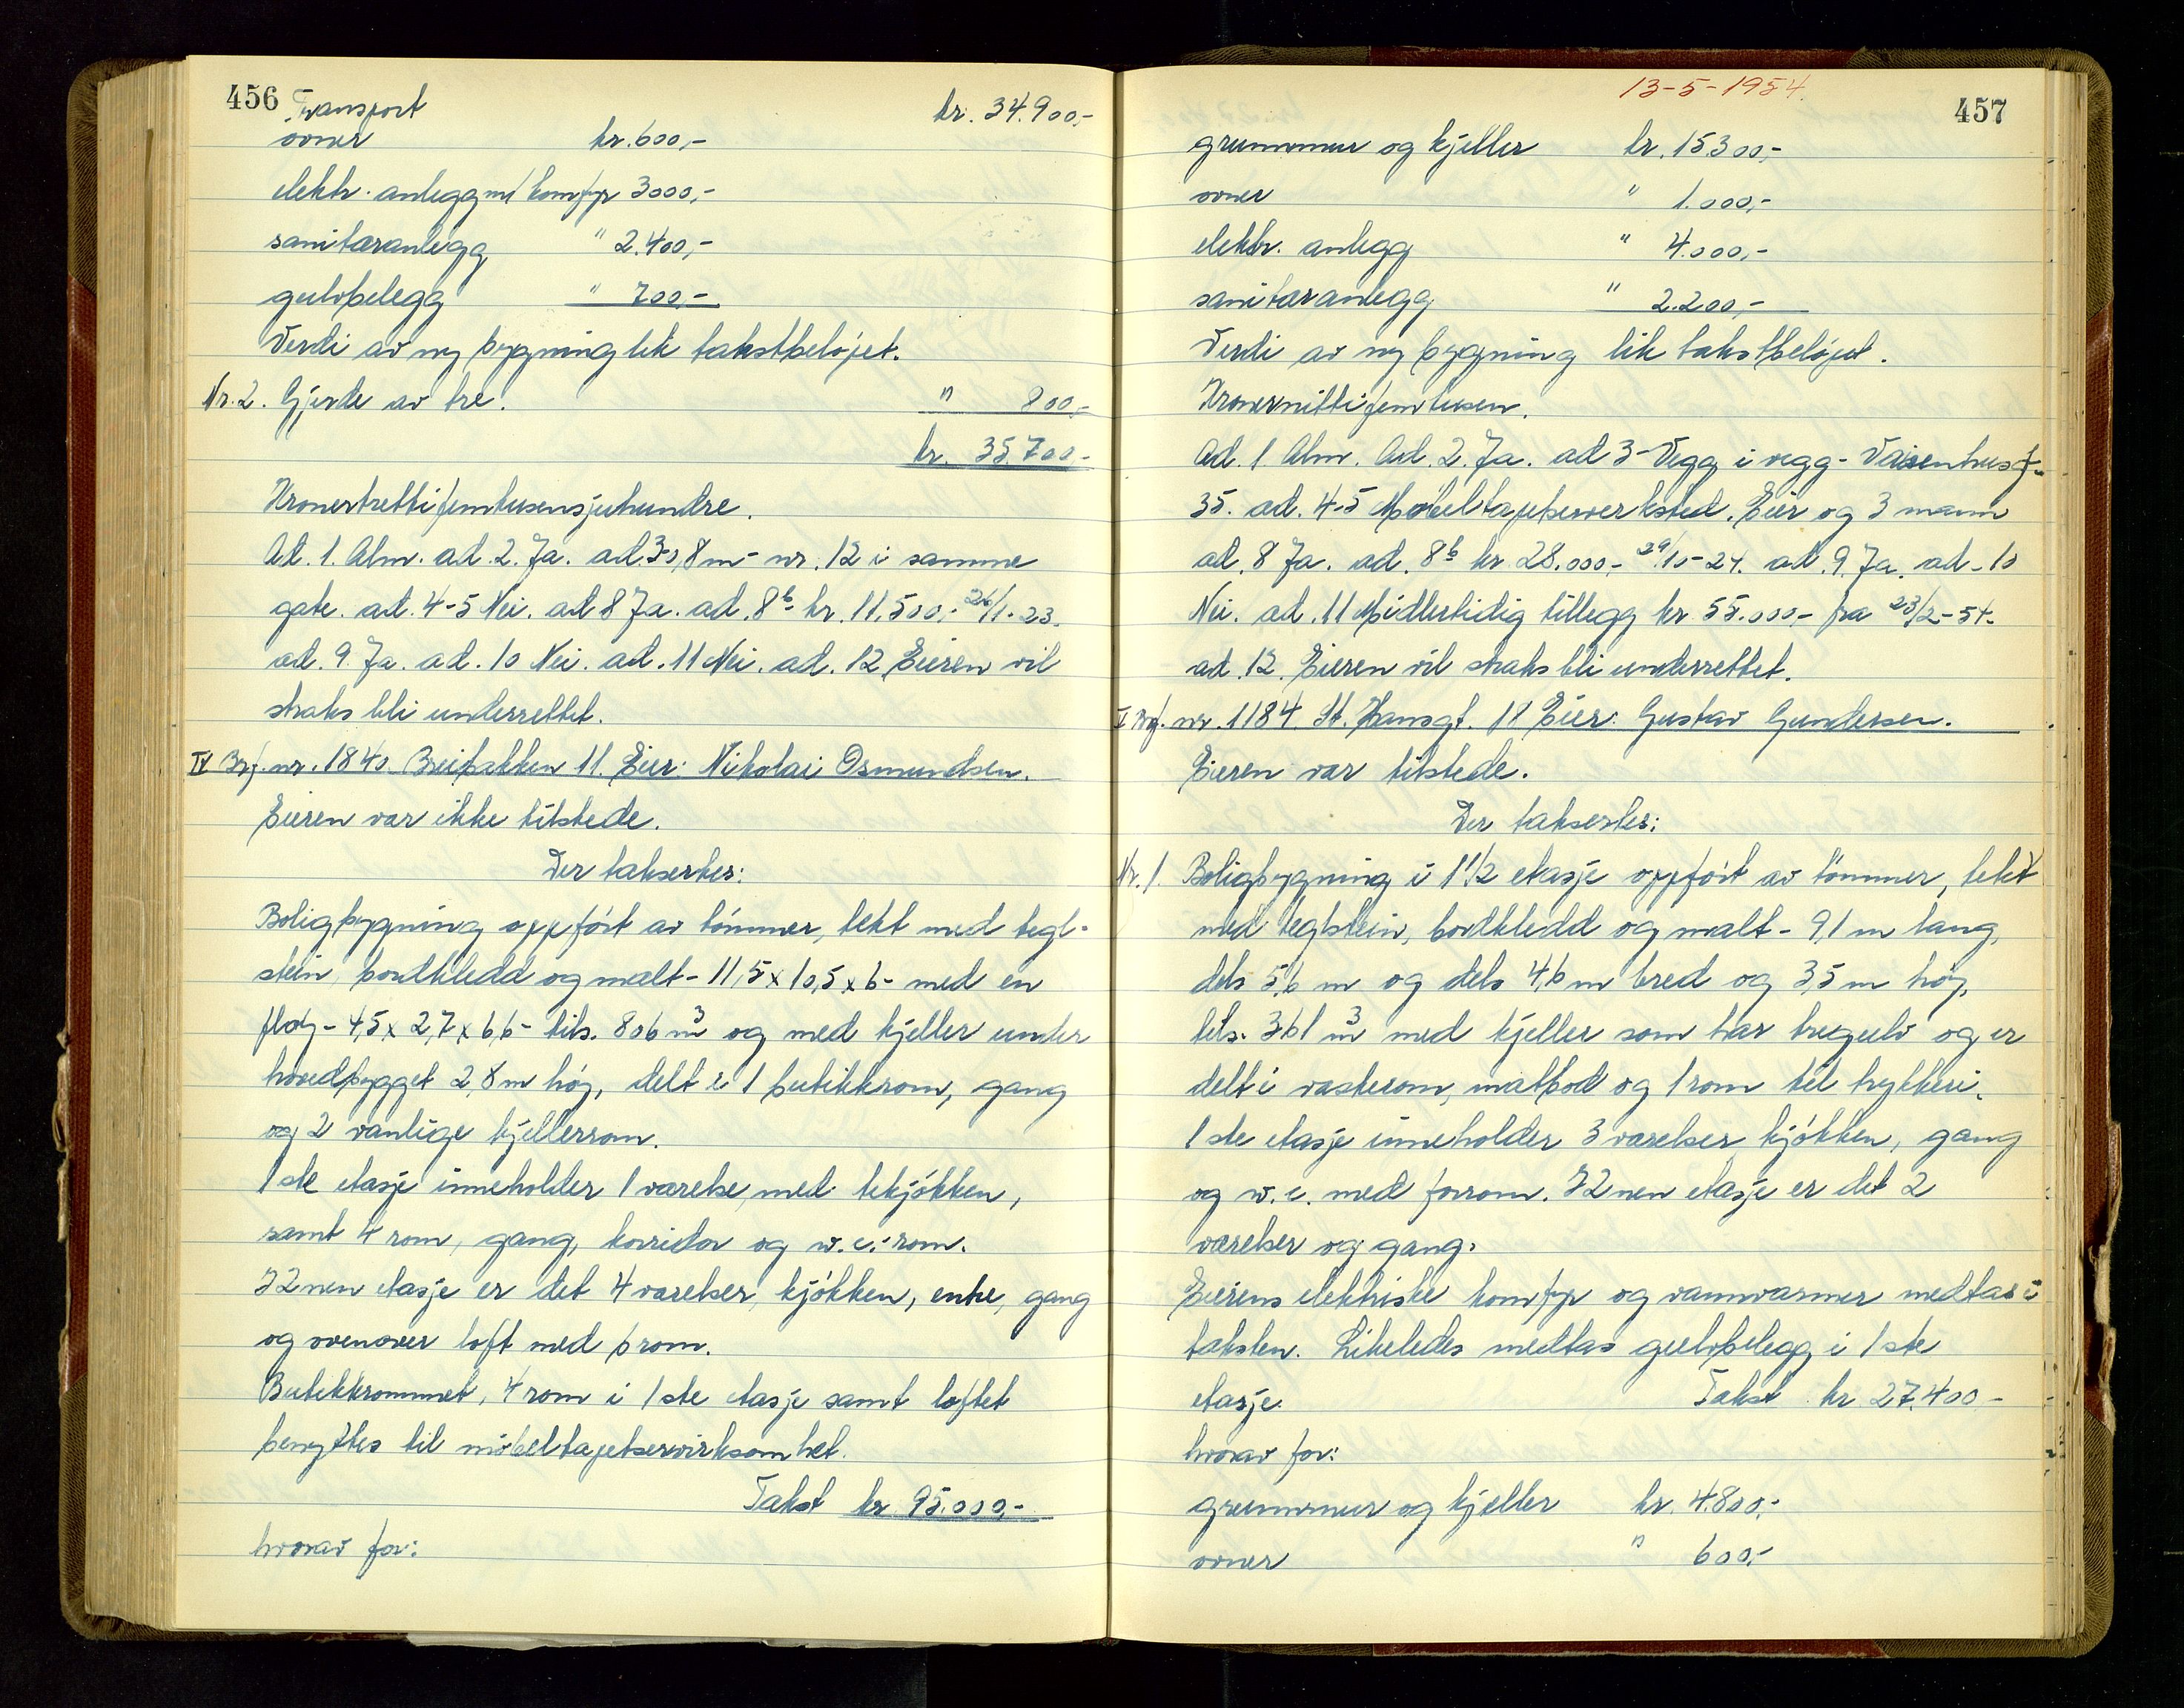 456 Transport kr. 34.900,-
ovner kr. 600,-
elektr. anlegg m/ komfyr 3000,-
sanitæranlegg " 2.400,-
gulvbelegg " 700,-
Verdi av ny bygning lik takstbeløpet.
Nr. 2. Gjerde av tre. " 800,-
kr. 35.700,-
Kronertrettifemtusensjuhundre.
Ad. 1. Alm. ad. 2. Ja. ad. 3-0,8 m - nr. 12 i samme
gate. ad. 4-5 Nei. ad 8 Ja. ad. 8b- kr. 11.500,- 26/1-23.
ad. 9. Ja. ad. 10 Nei. ad. 11 Nei. ad. 12 Eieren vil
straks bli underrettet.
IV Brf. nr. 1840. Breibakken 11. Eier: Nikolai Osmundsen.
Eieren var ikke tilstede.
Der taksertes:
Boligbygning oppført av tømmer, tekt med tegl-
stein, bordkledd og malt - 11,5 x 10,5 x 6 - med en
fløy - 4,5 x 2,7 x 6,6 - tils. 806 m3 og med kjeller under
hovedbygget 2,8 m høy, delt i 1 butikkrom, gang
og 2 vanlige kjellerrom.
1ste etasje inneholder 1 værelse, med tekjøkken,
samt 4 rom, gang, korridor og w.c.-rom.
I 2nen etasje er det 4 værelser, kjøkken, entre, gang
og ovenover loft med 6 rom.
Butikkrommet, 4 rom i 1ste etasje samt loftet
benyttes til møbeltapetservirksomhet.
Takst kr 95.000,-
hvorav for:
13-5-1954.
457
grunnmur og kjeller kr. 15.300,-
ovner " 1.000,-
elektr. anlegg " 4.000,-
sanitæranlegg " 2.200,-
Verdi av ny bygning lik takstbeløpet.
Kronernittifemtusen.
Ad. 1. Alm. Ad. 2. Ja. ad 3 - Vegg i vegg - Vaisenhusg.
35. ad. 4-5 Møbeltapetserverksted. Eier og 3 mann
ad. 8 Ja. ad. 8b kr 28.000,- 29/10-24. ad. 9. Ja. ad - 10
Nei. ad. 11 Midlertidig tillegg kr 55.000,- fra 23/2-54.
ad. 12. Eieren vil straks bli underrettet.
V Brf. nr. 1184. St. Hansgt. 18 Eier: Gustav Gundersen.
Eieren var tilstede.
Der taksertes:
Nr. 1. Boligbygning i 1 1/2 etasje oppført av tømmer, tekt
med teglstein, bordkledd og malt - 9,1 m lang,
dels 5,6 m og dels 4,6 m bred og 3,5 m høy,
tils. 361 m3 med kjeller som har tregulv og er
delt i vaskerom, matbod og 1 rom til trykkeri.
1ste etasje inneholder 3 værelser, kjøkken, gang
og w.c. med forrom. I 2nen etasje er det 2
værelser og gang.
Eierens elektriske komfyr og vannvarmer medtas i
taksten. Likeledes medtas gulvbelegg i 1ste
etasje. Takst kr 27.400-
hvorav for:
grunnmur og kjeller kr. 4.800,-
ovner " 600,-